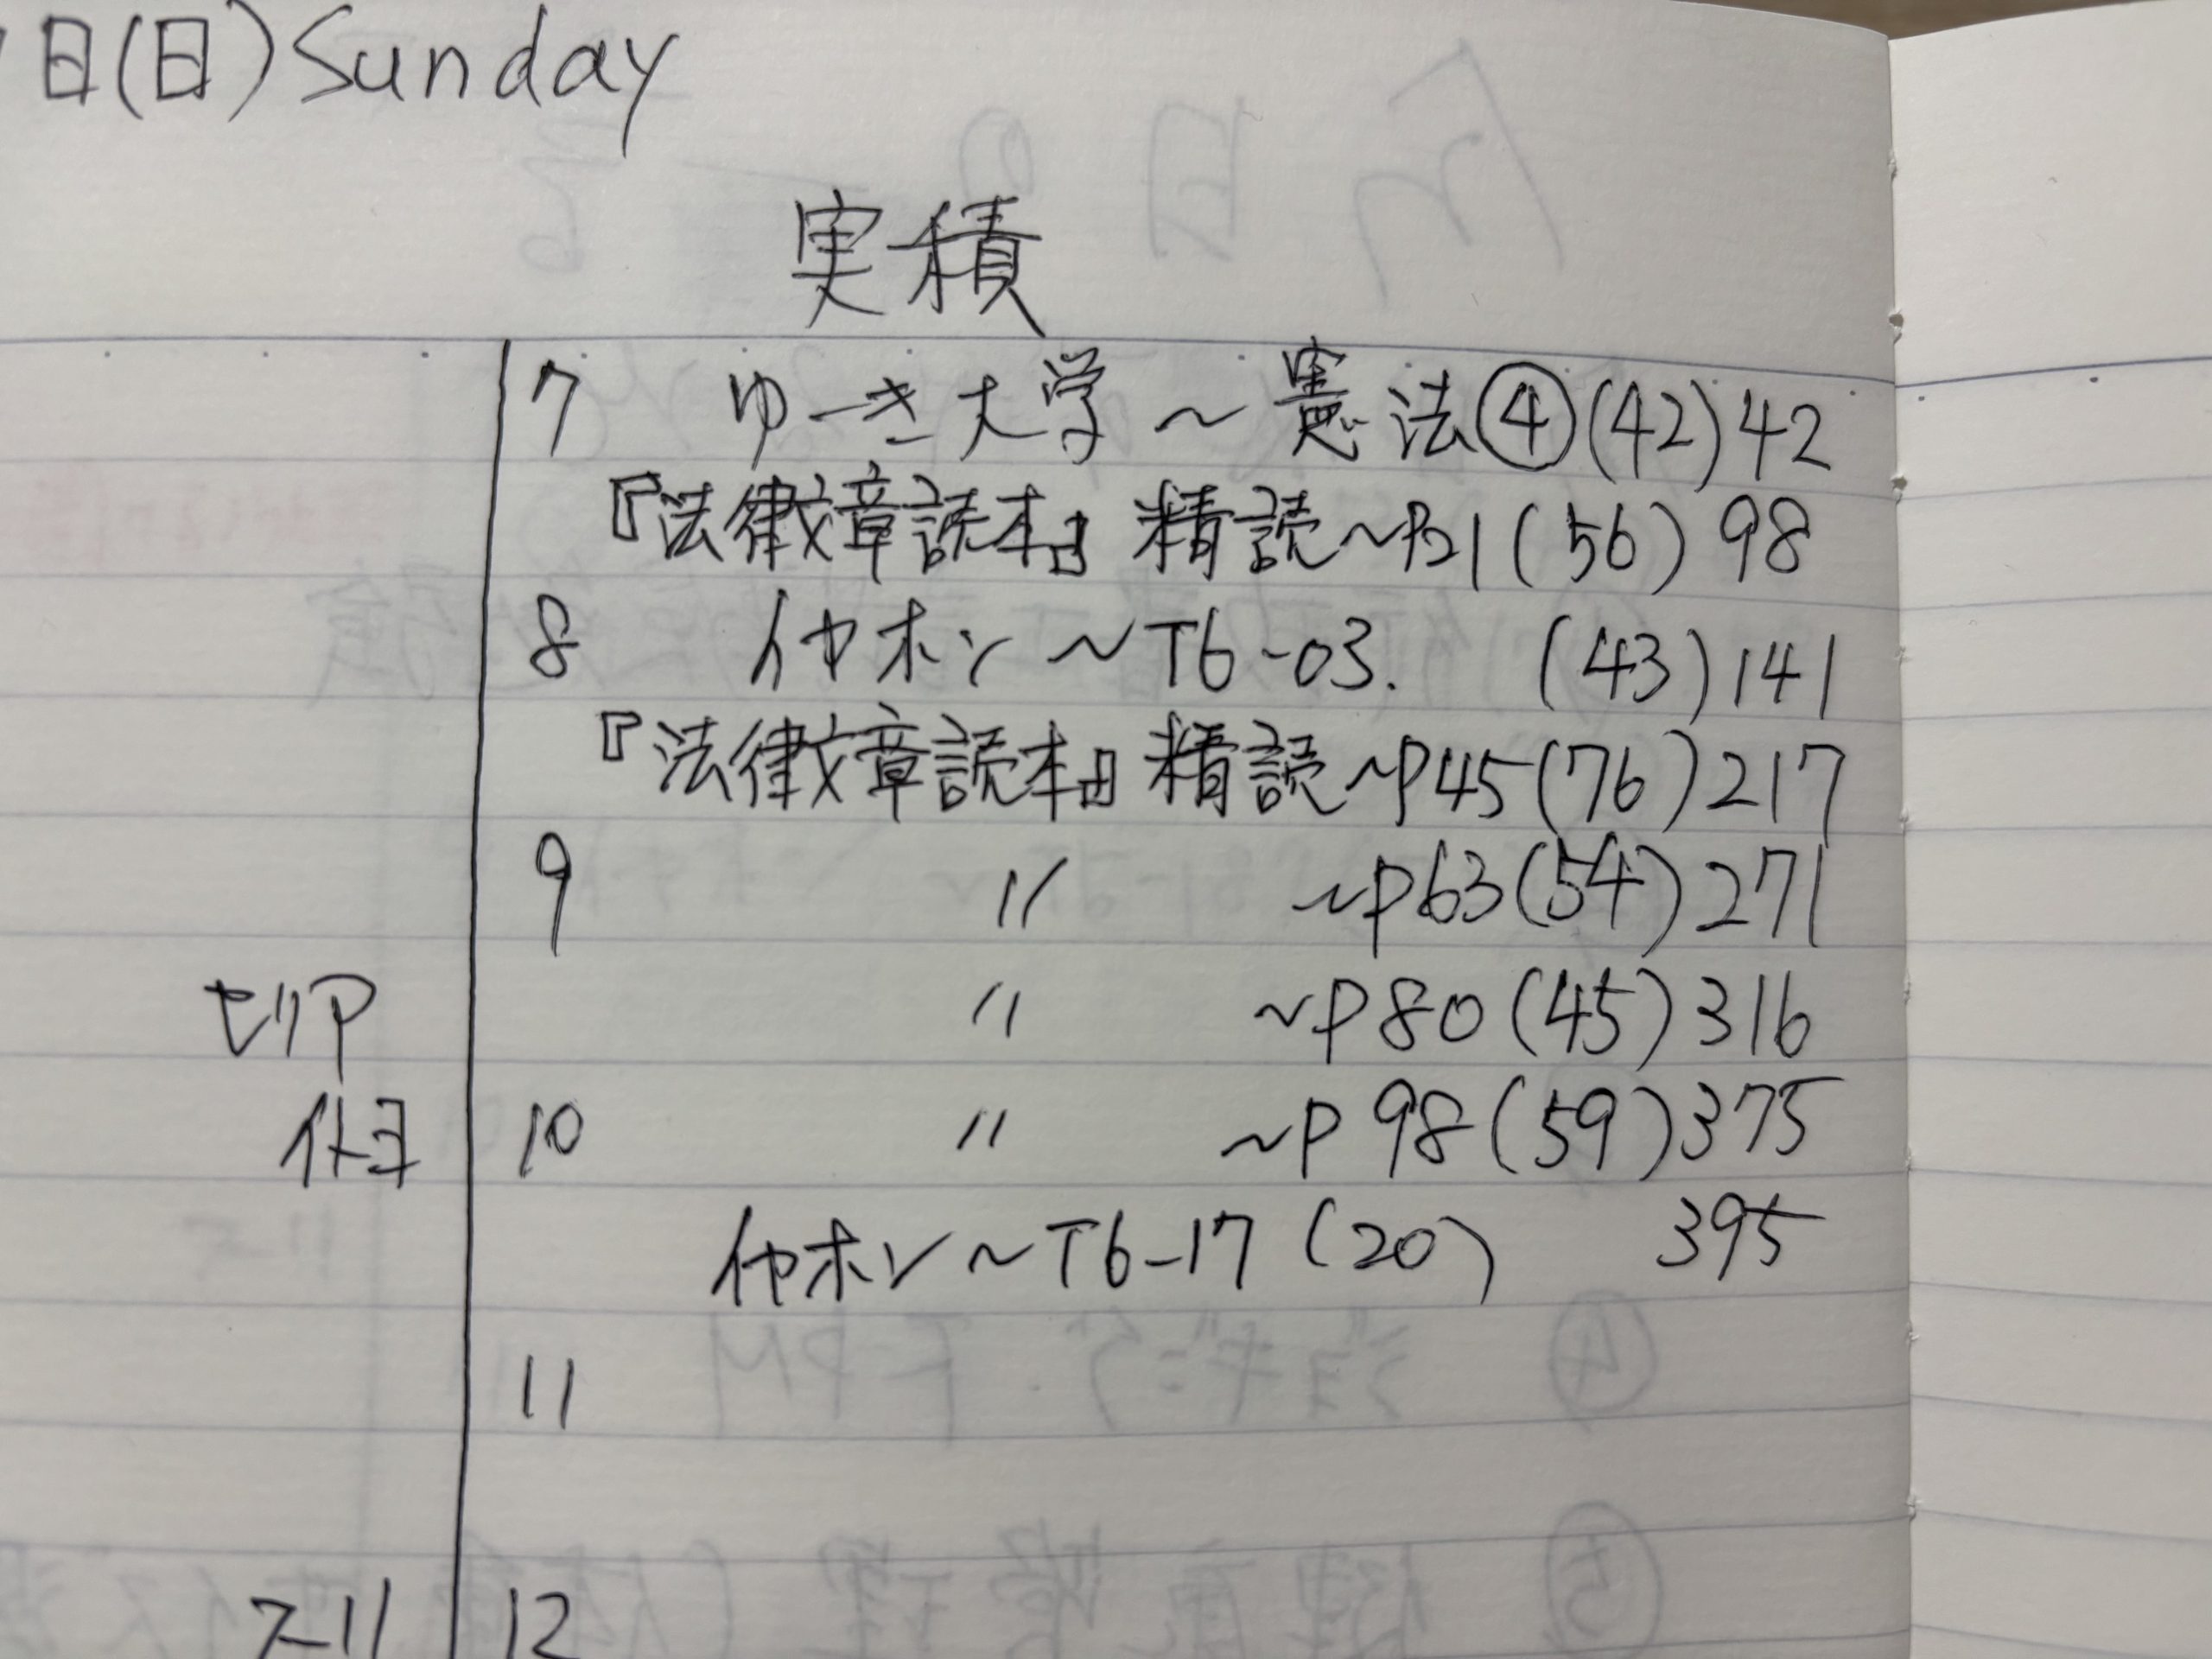 日(日)Sunday
実積
7 ゆーき大学～憲法④(42)42
『法律文章読本』精読～P21(56)98
8 イヤホン～T6-03. (43)141
『法律文章読本』精読～P45(76)217
9 〃 ～P63(54)271
セリア 〃 ～P80(45)316
イトヨ 10 〃 ～P98(59)375
イヤホン～T6-17(20) 395
11
12